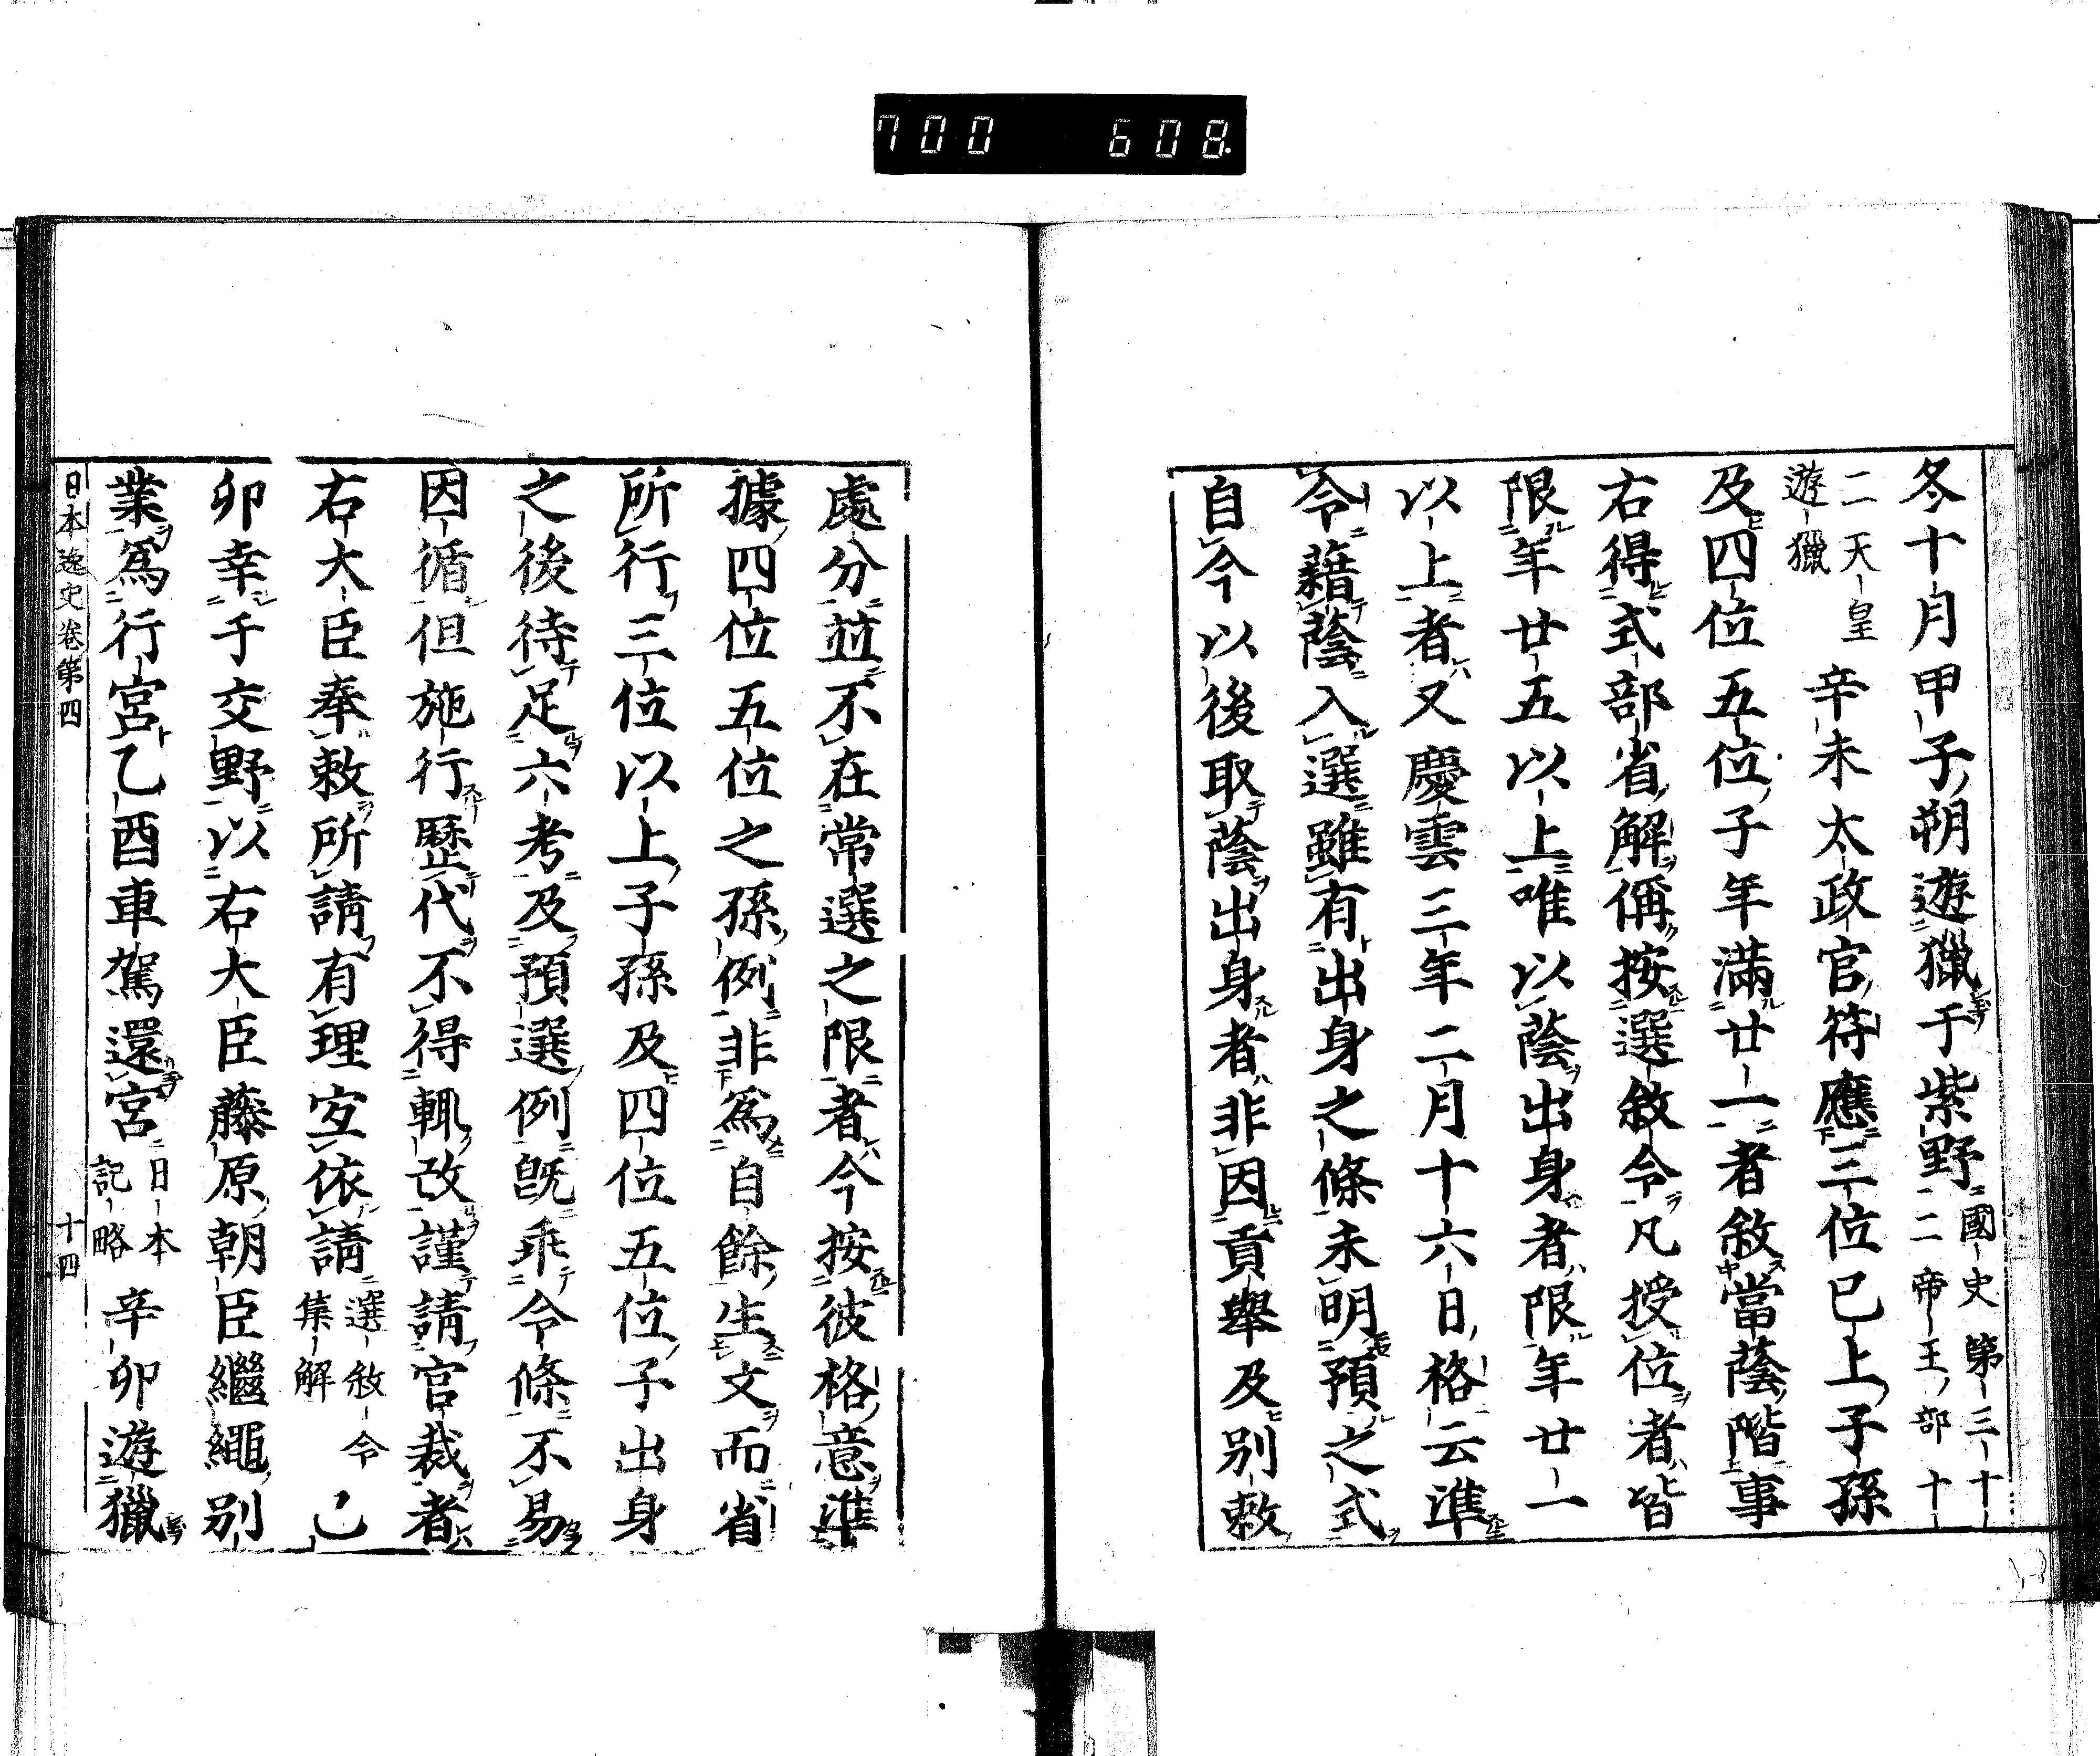 700 608.
冬十月甲子朔遊獵于紫野國史第三十
二帝王部十
二天皇
遊獵辛未太政官符應三位已上子孫
及四位五位子年滿廿一者敘當蔭階事
右得式部省解偁按選敘令凡授位者皆
限年廿五以上唯以蔭出身者限年廿一
以上者又慶雲三年二月十六日格云準
令藉蔭入選雖有出身之條未明預之式
自今以後取蔭出身者非因貢舉及別敕
處分並不在常選之限者今按彼格意準
據四位五位之孫例非爲自餘生文而省
所行三位以上子孫及四位五位子出身
之後待足六考及預選例既乖令條不易
因循但施行歷代不得輙改謹請官裁者
右大臣奉敕所請有理宐依請選敘令
集解己
卯幸于交野以右大臣藤原朝臣繼繩別
業爲行宮乙酉車駕還宮日本
記略辛卯遊獵
日本逸史卷第四 十四